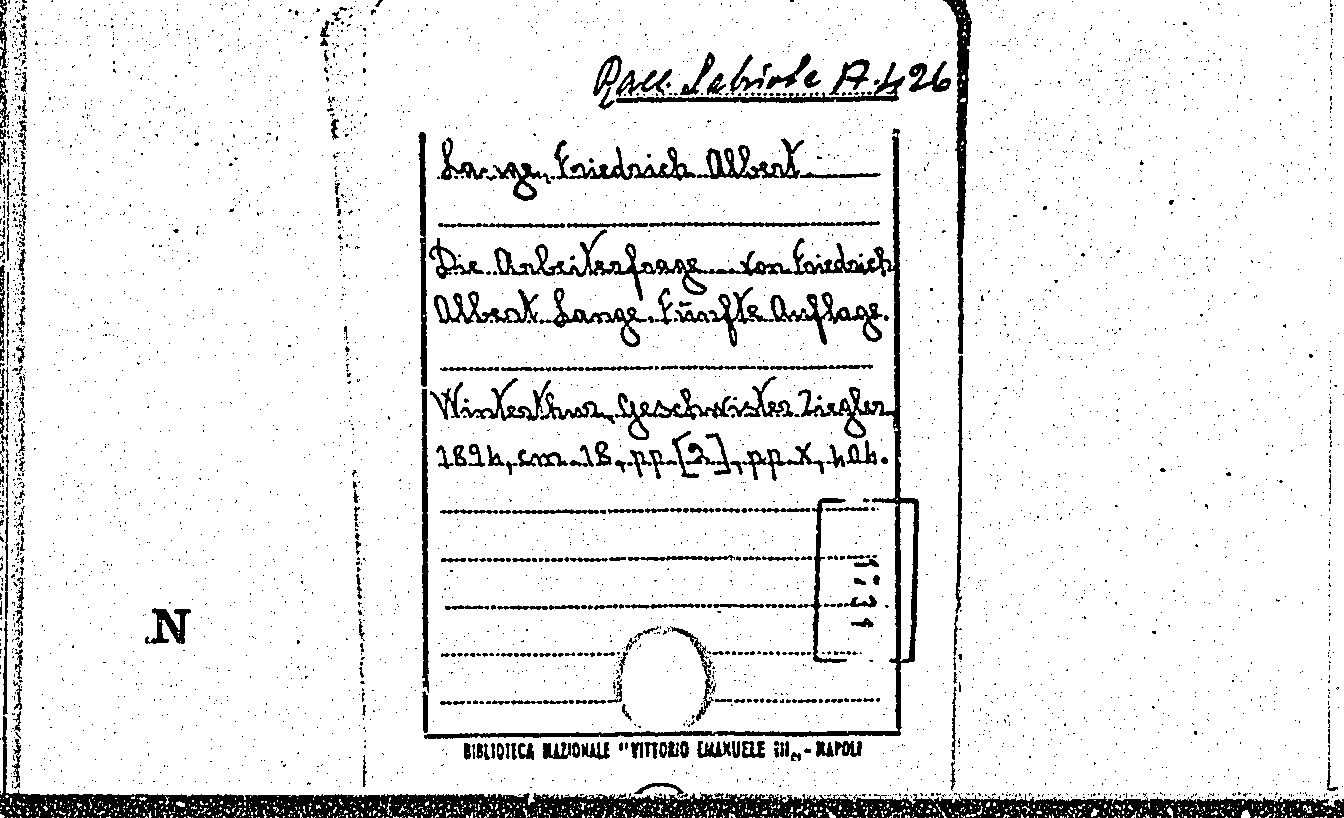 Racc. Labriola A. 426
Lange, Friedrich Albert
Die Arbeiterfrage von Friedrich
Albert Lange. Fünfte Auflage.
Winterthur, Geschwister Ziegler
1894, cm. 18, pp. [2], pp. X, 404.
N
BIBLIOTECA NAZIONALE "VITTORIO EMANUELE III„ - NAPOLI